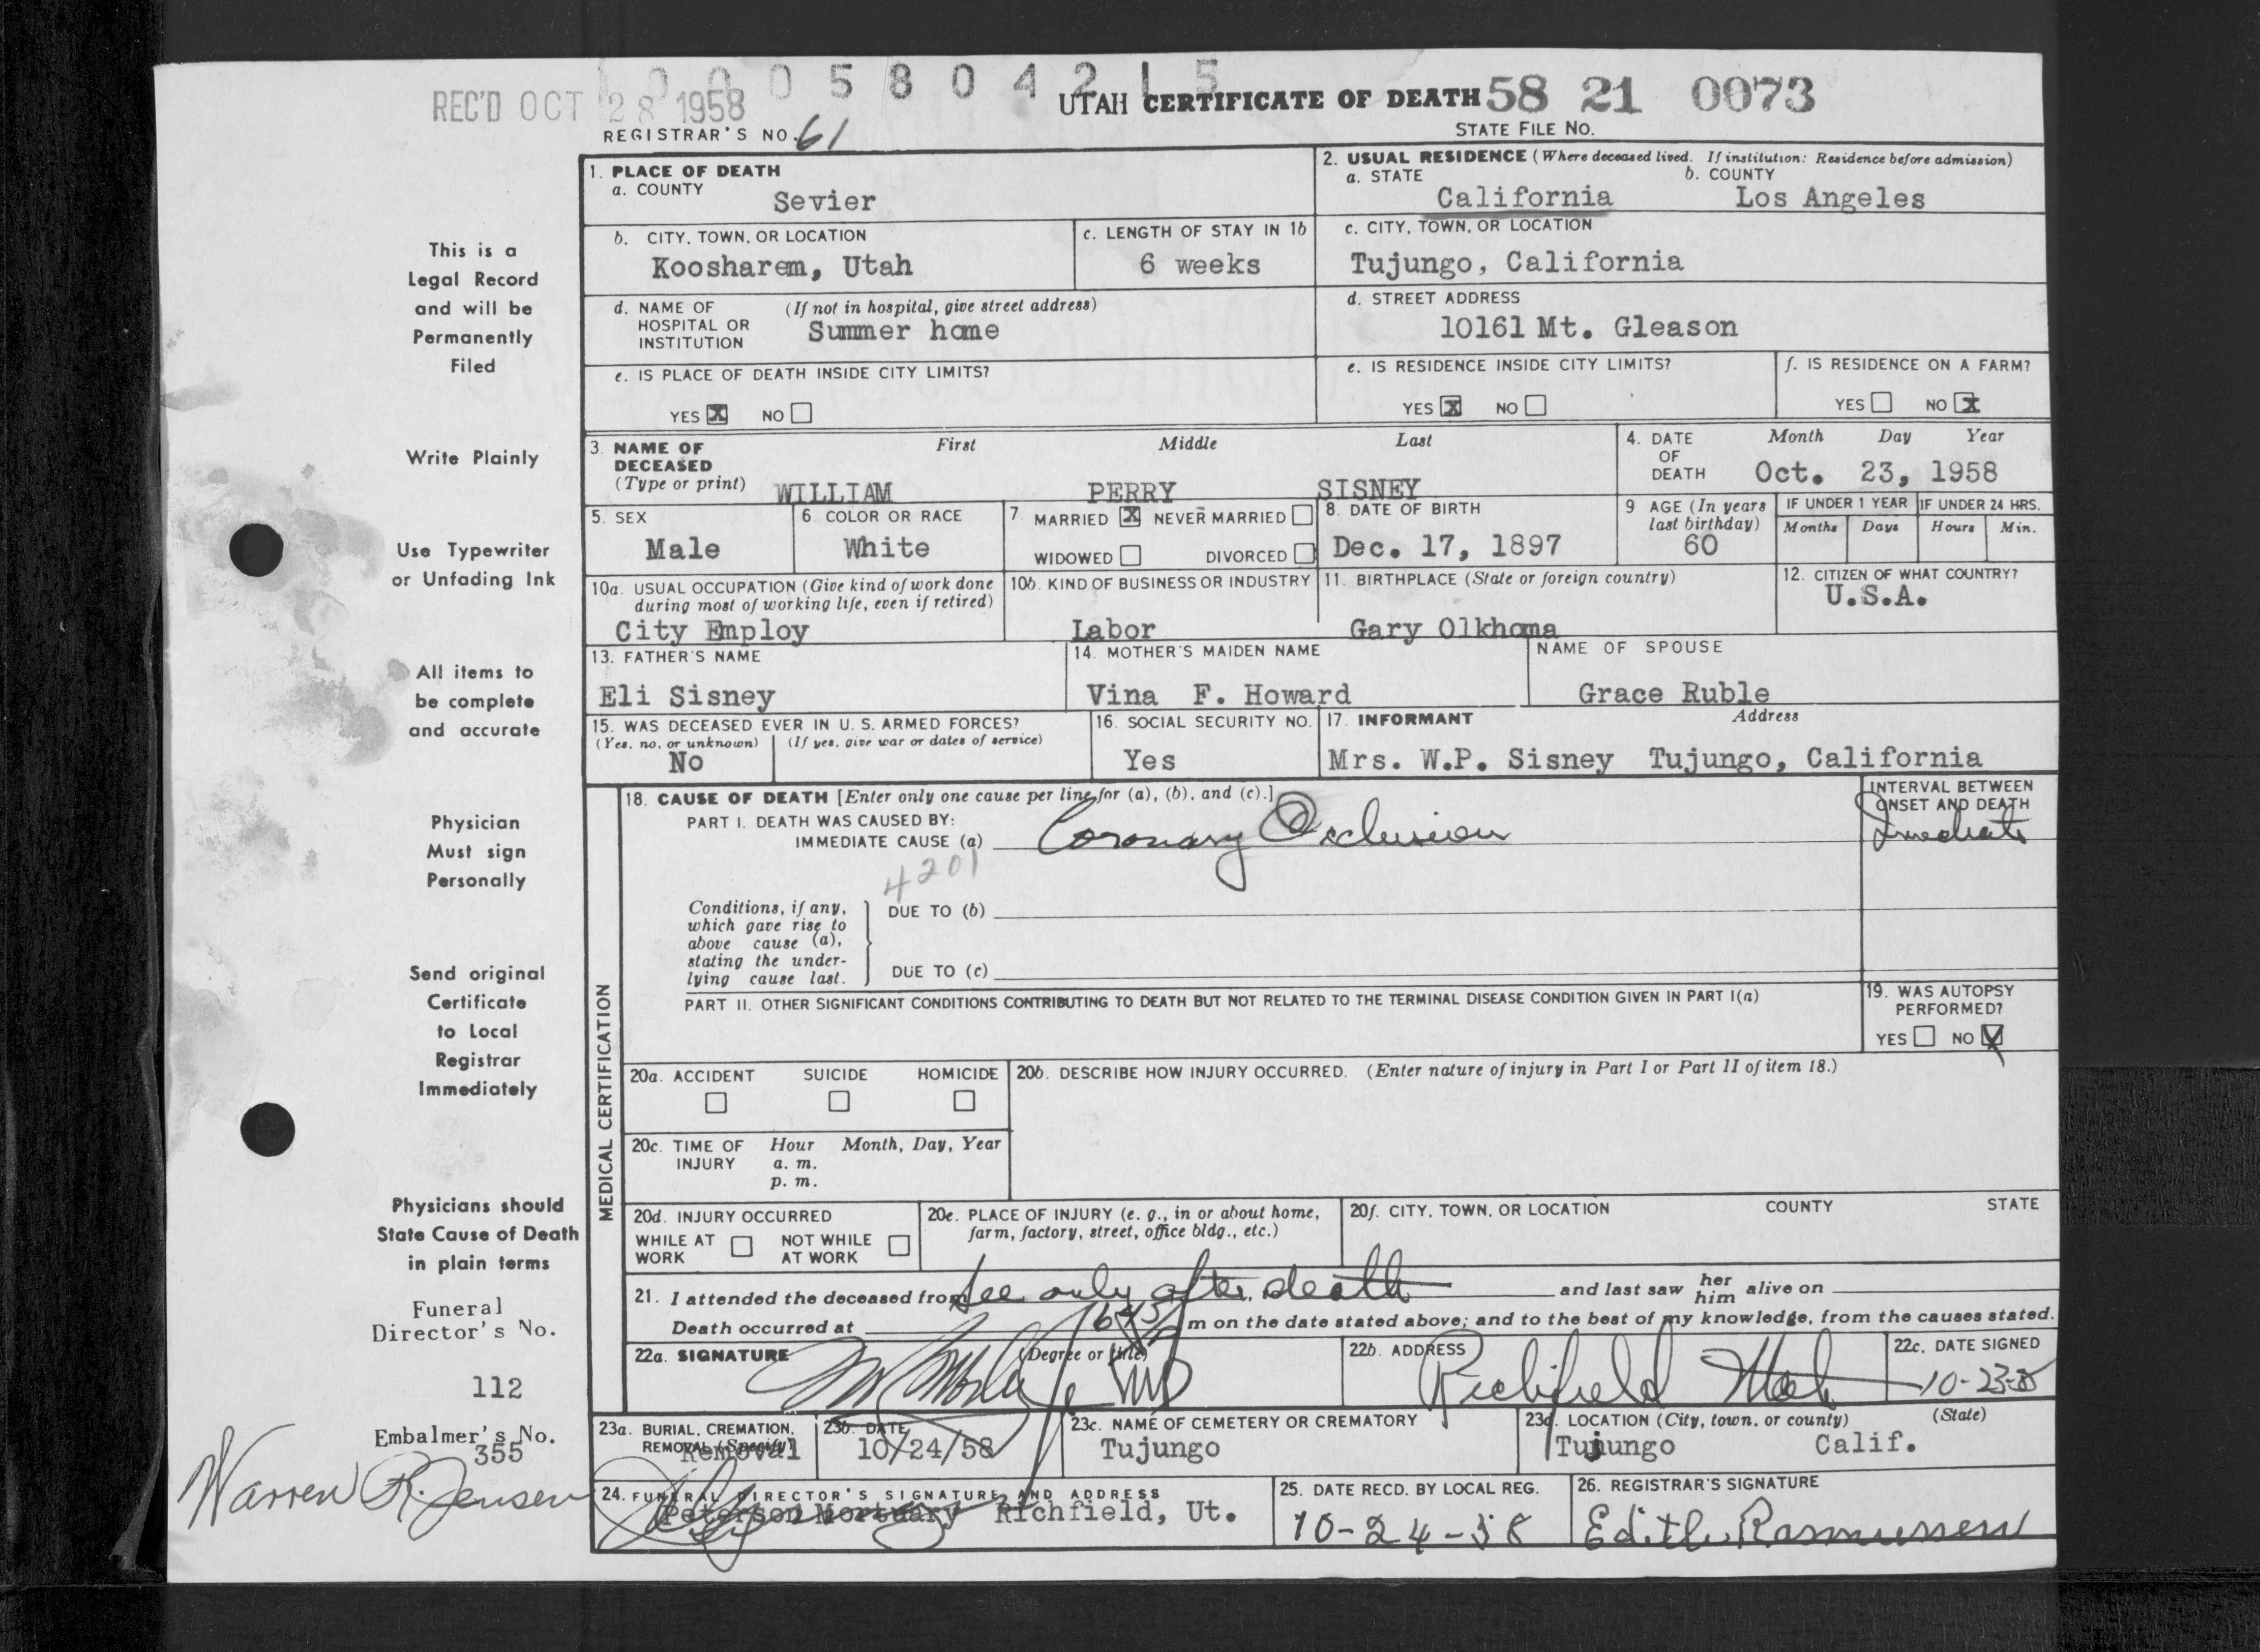 1 0 0 0 5 8 0 4 2 1 5
REC'D OCT 28 1958
UTAH CERTIFICATE OF DEATH 58 21 0073
REGISTRAR'S NO. 61
STATE FILE NO.
1. PLACE OF DEATH
a. COUNTY
Sevier
2. USUAL RESIDENCE (Where deceased lived. If institution: Residence before admission)
a. STATE b. COUNTY
California Los Angeles
b. CITY, TOWN, OR LOCATION
Koosharem, Utah
c. LENGTH OF STAY IN 1b
6 weeks
c. CITY, TOWN, OR LOCATION
Tujungo, California
d. NAME OF HOSPITAL OR INSTITUTION (If not in hospital, give street address)
Summer home
d. STREET ADDRESS
10161 Mt. Gleason
e. IS PLACE OF DEATH INSIDE CITY LIMITS?
YES X NO
e. IS RESIDENCE INSIDE CITY LIMITS?
YES X NO
f. IS RESIDENCE ON A FARM?
YES NO X
3. NAME OF DECEASED (Type or print)
First Middle Last
WILLIAM PERRY SISNEY
4. DATE OF DEATH
Month Day Year
Oct. 23, 1958
5. SEX
Male
6. COLOR OR RACE
White
7. MARRIED X NEVER MARRIED
WIDOWED DIVORCED
8. DATE OF BIRTH
Dec. 17, 1897
9 AGE (In years last birthday)
60
IF UNDER 1 YEAR
Months Days
IF UNDER 24 HRS.
Hours Min.
10a. USUAL OCCUPATION (Give kind of work done during most of working life, even if retired)
City Employ
10b. KIND OF BUSINESS OR INDUSTRY
Labor
11. BIRTHPLACE (State or foreign country)
Gary Olkhoma
12. CITIZEN OF WHAT COUNTRY?
U.S.A.
13. FATHER'S NAME
Eli Sisney
14. MOTHER'S MAIDEN NAME
Vina F. Howard
NAME OF SPOUSE
Grace Ruble
15. WAS DECEASED EVER IN U. S. ARMED FORCES?
(Yes, no, or unknown) (If yes, give war or dates of service)
No
16. SOCIAL SECURITY NO.
Yes
17. INFORMANT Address
Mrs. W.P. Sisney Tujungo, California
MEDICAL CERTIFICATION
18. CAUSE OF DEATH [Enter only one cause per line for (a), (b), and (c).]
PART I. DEATH WAS CAUSED BY:
IMMEDIATE CAUSE (a) Coronary Occlusion
INTERVAL BETWEEN ONSET AND DEATH
Imediate
4201
Conditions, if any, which gave rise to above cause (a), stating the underlying cause last.
DUE TO (b)
DUE TO (c)
PART II. OTHER SIGNIFICANT CONDITIONS CONTRIBUTING TO DEATH BUT NOT RELATED TO THE TERMINAL DISEASE CONDITION GIVEN IN PART I(a)
19. WAS AUTOPSY PERFORMED?
YES NO X
20a. ACCIDENT SUICIDE HOMICIDE
20b. DESCRIBE HOW INJURY OCCURRED. (Enter nature of injury in Part I or Part II of item 18.)
20c. TIME OF INJURY
Hour Month, Day, Year
a. m.
p. m.
20d. INJURY OCCURRED
WHILE AT WORK NOT WHILE AT WORK
20e. PLACE OF INJURY (e. g., in or about home, farm, factory, street, office bldg., etc.)
20f. CITY, TOWN, OR LOCATION COUNTY STATE
21. I attended the deceased from See only after death and last saw her him alive on
Death occurred at 645 m on the date stated above; and to the best of my knowledge, from the causes stated.
22a. SIGNATURE (Degree or title)
MD
22b. ADDRESS
Richfield Utah
22c. DATE SIGNED
10-23-58
23a. BURIAL, CREMATION, REMOVAL (Specify)
Removal
23b. DATE
10/24/58
23c. NAME OF CEMETERY OR CREMATORY
Tujungo
23d. LOCATION (City, town, or county) (State)
Tujungo Calif.
24. FUNERAL DIRECTOR'S SIGNATURE AND ADDRESS
Peterson Mortuary Richfield, Ut.
25. DATE RECD. BY LOCAL REG.
10-24-58
26. REGISTRAR'S SIGNATURE
Edith Rasmussen
This is a
Legal Record
and will be
Permanently
Filed
Write Plainly
Use Typewriter
or Unfading Ink
All items to
be complete
and accurate
Physician
Must sign
Personally
Send original
Certificate
to Local
Registrar
Immediately
Physicians should
State Cause of Death
in plain terms
Funeral
Director's No.
112
Embalmer's No.
355
Warren R. Jensen